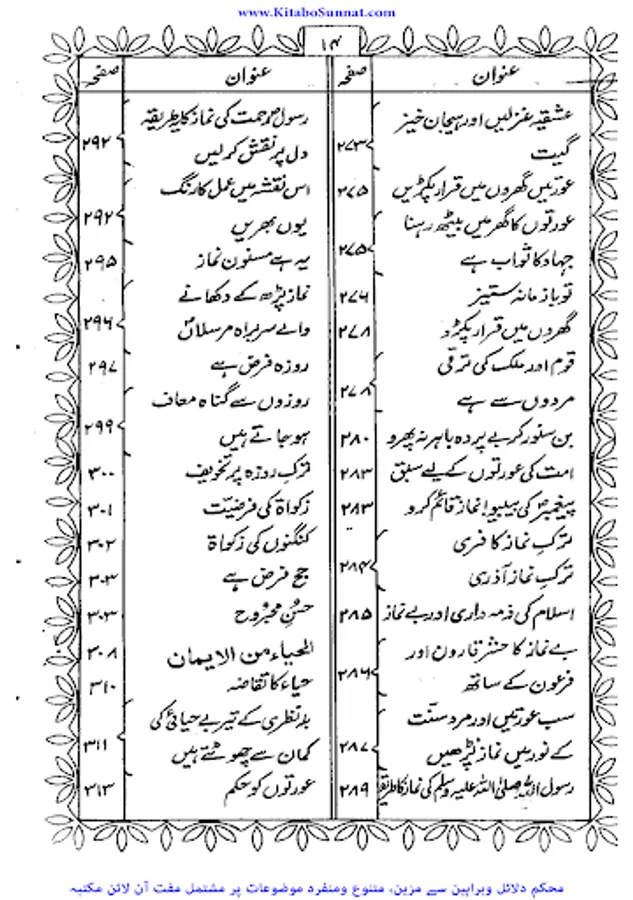 www.KitaboSunnat.com
۱۴
عنوان صفحہ
عشقیہ غزلیں اور ہیجان خیز
گیت ۲۷۳
عورتیں گھروں میں قرار پکڑیں ۲۷۵
عورتوں کا گھر میں بیٹھ رہنا
جہاد کا ثواب ہے ۲۷۵
تو باز مانہ ستیز ۲۷۶
گھروں میں قرار پکڑو ۲۷۸
قوم اور ملک کی ترقی
مردوں سے ہے ۲۷۸
بن سنور کر بے پردہ باہر نہ پھرو ۲۸۰
امت کی عورتوں کے لیے سبق ۲۸۳
پیغمبر کی بیبیو! نماز قائم کرو ۲۸۳
ترکِ نماز کافری
ترکِ نماز آذری ۲۸۴
اسلام کی ذمہ داری اور بے نماز ۲۸۵
بے نماز کا حشر قارون اور
فرعون کے ساتھ ۲۸۶
سب عورتیں اور مرد سنّت
کے نور میں نماز پڑھیں ۲۸۷
رسول اللہ صلی اللہ علیہ وسلم کی نماز کا طریقہ ۲۸۹
عنوان صفحہ
رسولِ رحمت کی نماز کا طریقہ
دل پر نقش کرلیں ۲۹۲
اس نقشہ میں عمل کا رنگ
یوں بھریں ۲۹۲
یہ ہے مسنون نماز ۲۹۵
نماز پڑھ کے دکھانے
والے سربراہ مرسلاں ۲۹۶
روزہ فرض ہے ۲۹۷
روزوں سے گناہ معاف
ہو جاتے ہیں ۲۹۹
ترکِ روزہ پر تخویف ۳۰۰
زکوٰۃ کی فرضیّت ۳۰۱
کنگنوں کی زکوٰۃ ۳۰۲
حج فرض ہے ۳۰۳
حسنِ مجروح ۳۰۳
الحیاء من الایمان ۳۰۸
حیاء کا تقاضہ ۳۱۰
بد نظری کے تیر بے حیائی کی
کمان سے چھوٹتے ہیں ۳۱۱
عورتوں کو حکم ۳۱۳
محکم دلائل وبراہین سے مزین، متنوع ومنفرد موضوعات پر مشتمل مفت آن لائن مکتبہ